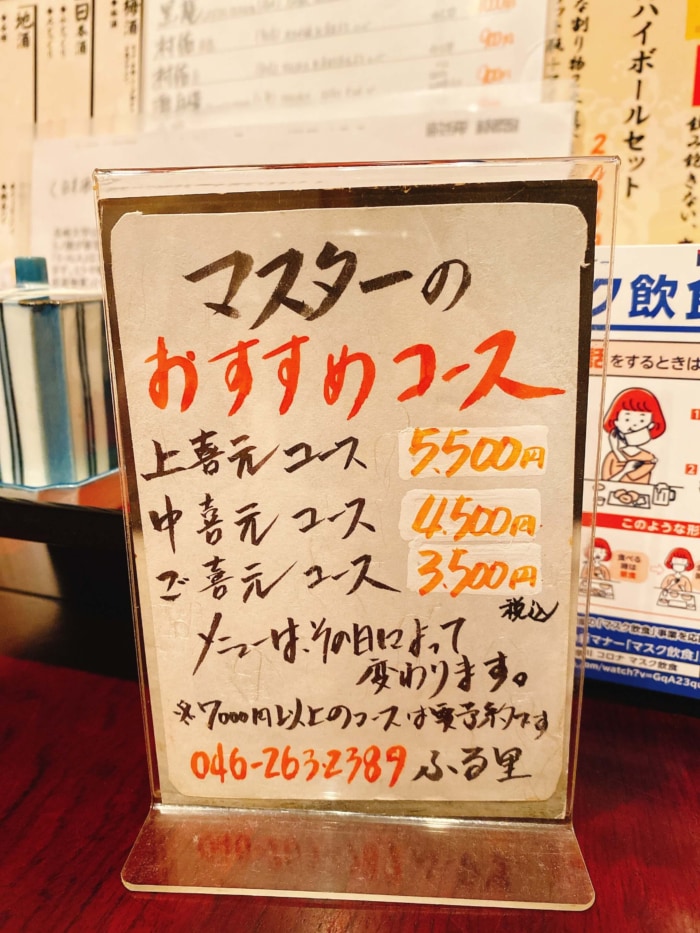 マスターの
おすすめコース
上喜元コース 5.500円
中喜元コース 4.500円
ご喜元コース 3.500円
税込
メニューは、その日によって
変わります。
※7000円以上のコースは要予約です
046-263-2389 ふる里
梅酒
日本酒
地酒
ハイボールセット
な割り物
飲み飽きない、
ク飲食
話をするときは
このような形
食べる時は
マナー「マスク飲食」
コロナ マスク飲食
am/watch?v=GqA23q